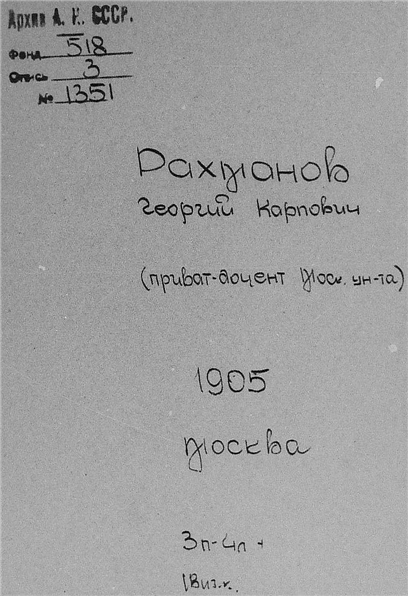 Архив А. Н. СССР.
Фонд 518
Опись 3
№ 1351
Рахманов
Георгий Карпович
(приват-доцент Моск. ун-та)
1905
Москва
3п-4л +
1 Виз.к.